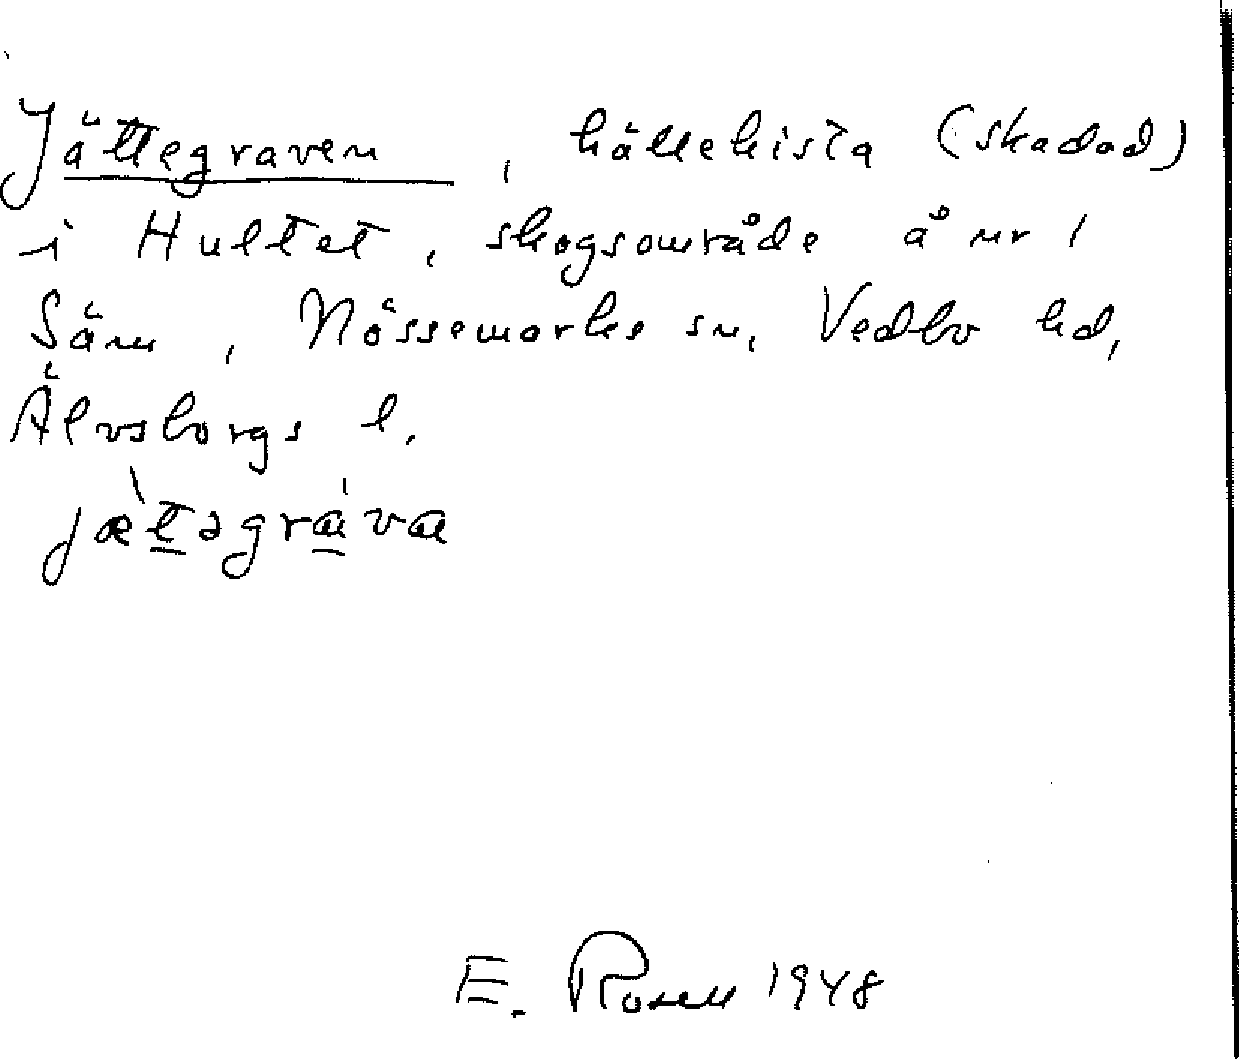 Jättegraven, hällekista (skadad)
i Hultet, skogsområde å nr 1
Säm, Nössemarks sn, Vedbo hd,
Älvsborgs l.
jætəgrava
E. Rosell 1948